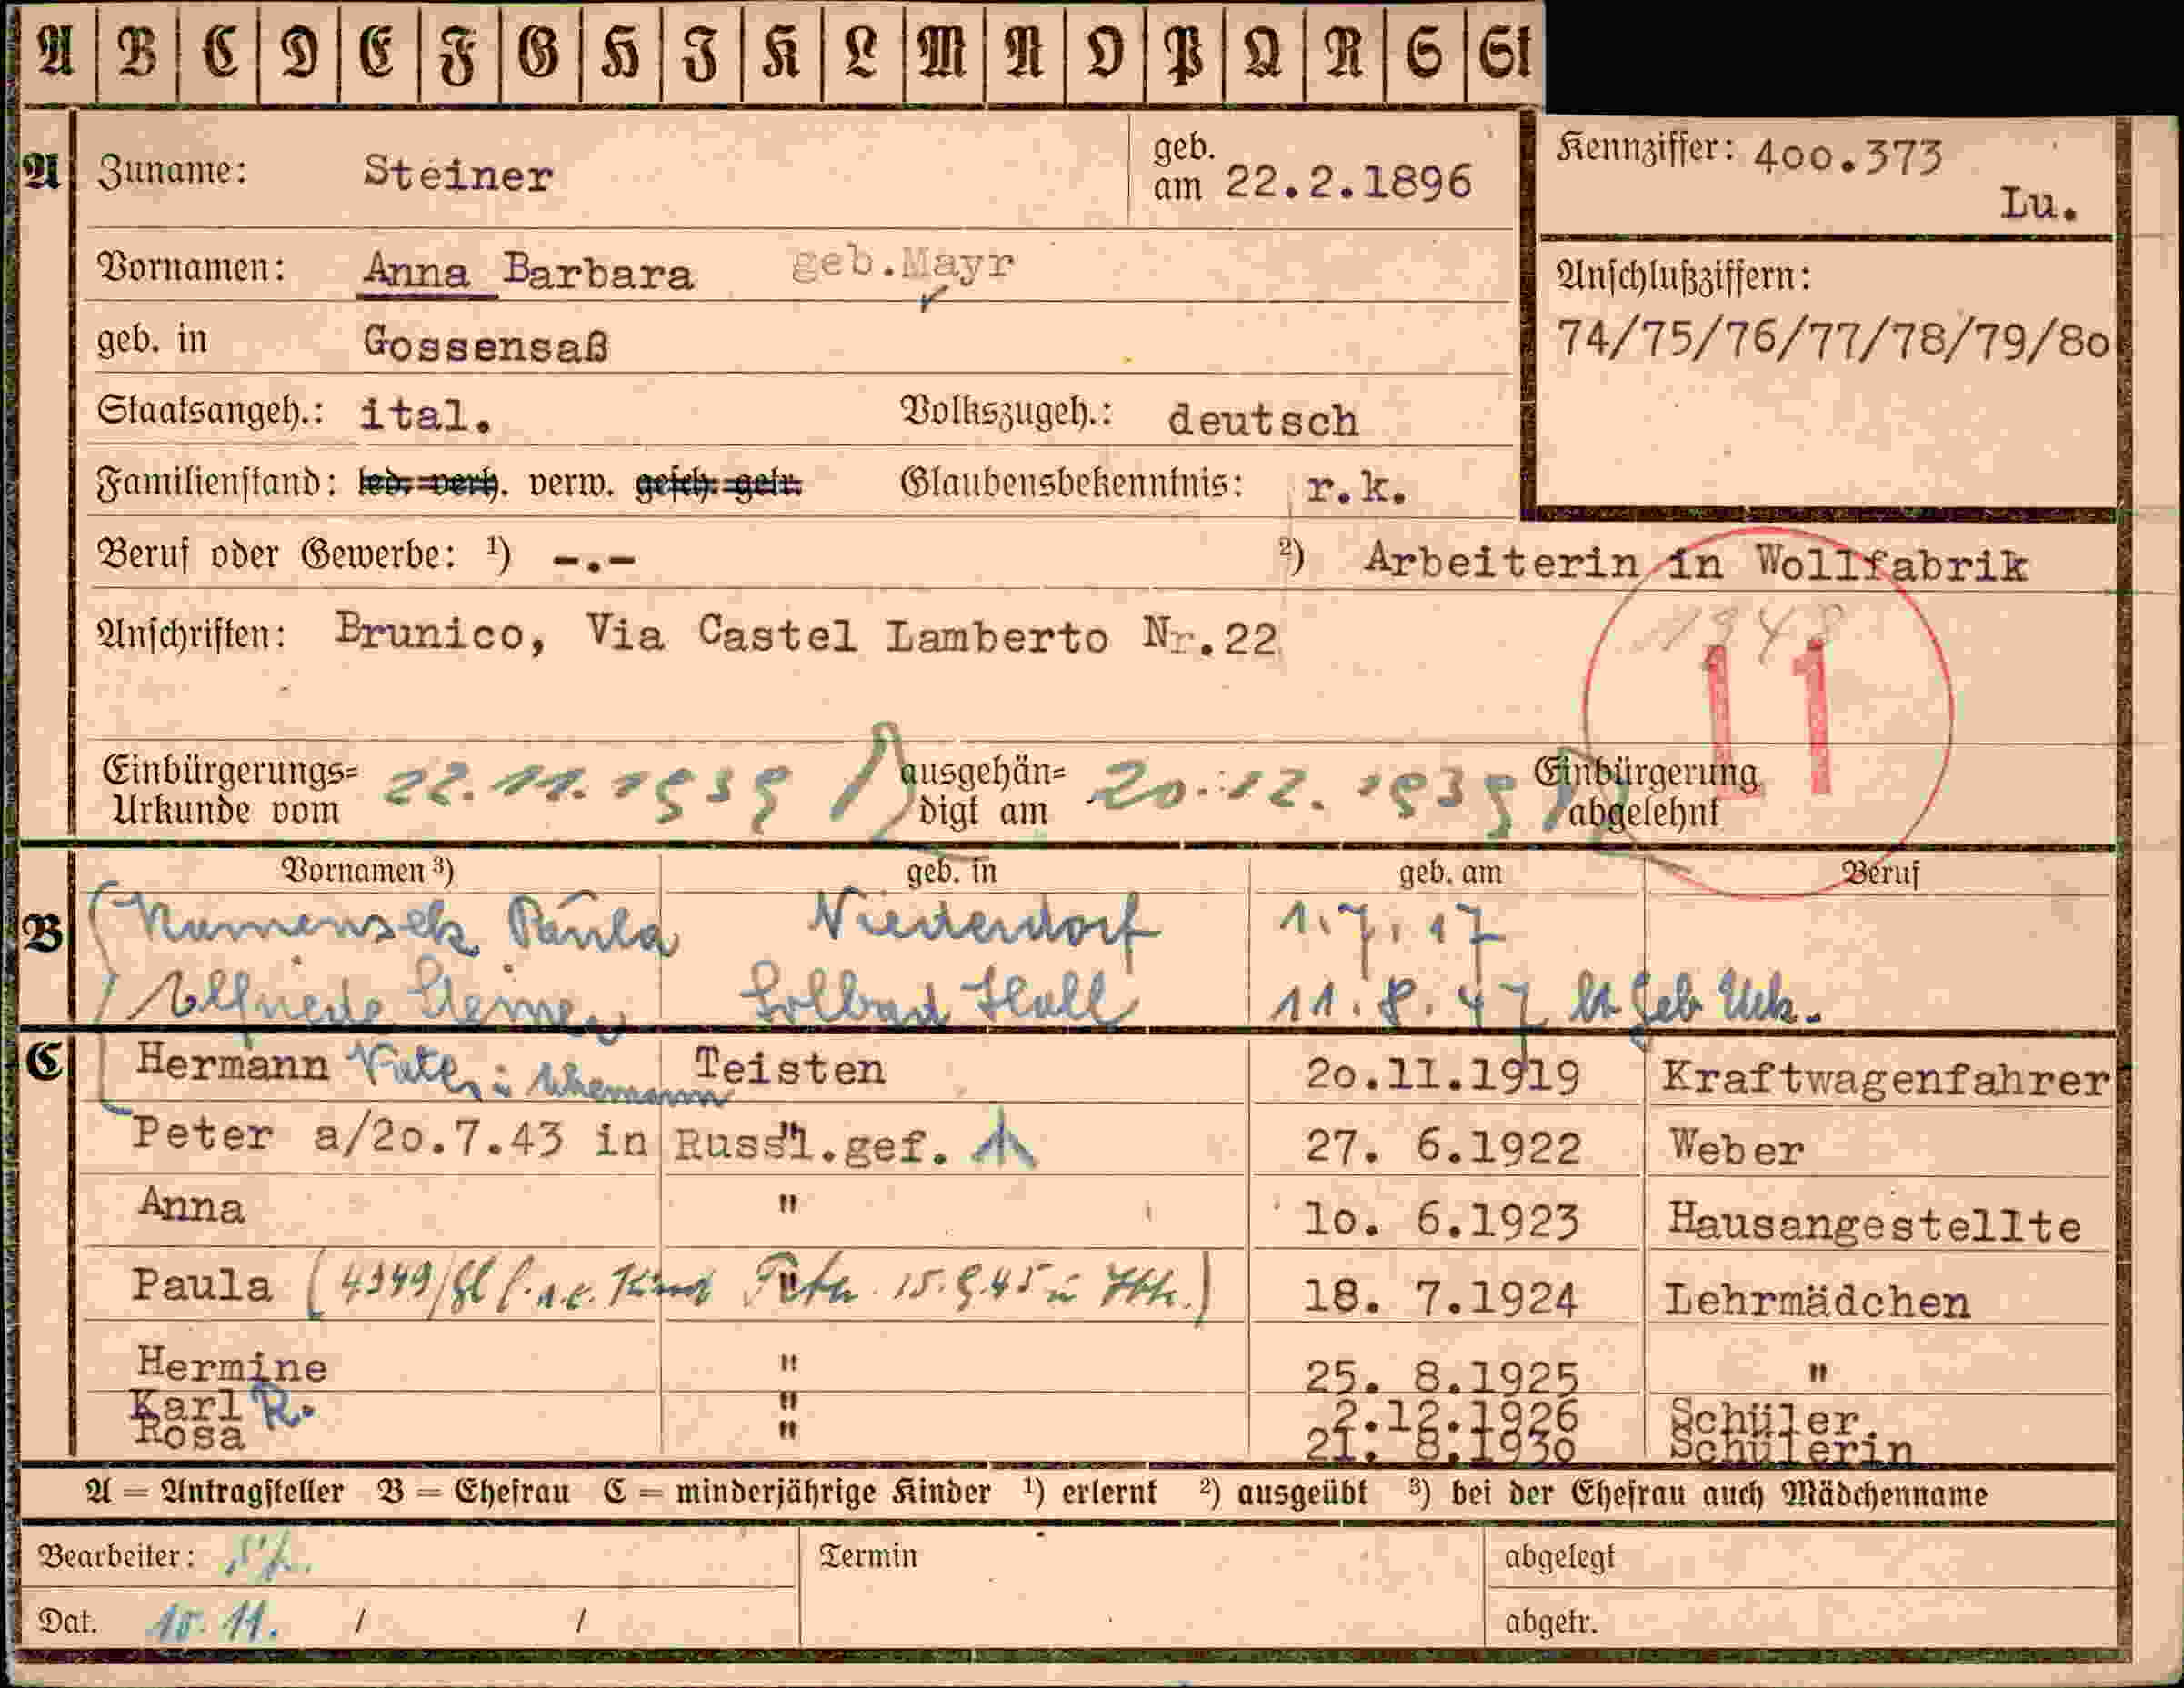 A B C D E F G H J K L M N O P Q R S St
A Zuname: Steiner geb. am 22.2.1896 Kennziffer: 400.373
Lu.
Vornamen: Anna Barbara geb.Mayr
Anschlußziffern:
geb. in Gossensaß
74/75/76/77/78/79/80
Staatsangeh.: ital. Volkszugeh.: deutsch
Familienstand: led. verh. verw. gesch. getr. Glaubensbekenntnis: r.k.
Beruf oder Gewerbe: ¹) -.- ²) Arbeiterin in Wollfabrik
1948
Anschriften: Brunico, Via Castel Lamberto Nr.22
11
Einbürgerungs= 22.11.1939 ausgehän= 20.12.1939 Einbürgerung
Urkunde vom digt am abgelehnt
Vornamen ³) geb. in geb. am Beruf
B Paula Niederdorf 1.7.17
Elfriede Steiner Solbad Hall 11.8.47 lt Geb Urk.
C Hermann Vater: Ehemann Teisten 20.11.1919 Kraftwagenfahrer
Peter a/20.7.43 in Russl.gef. 27. 6.1922 Weber
Anna " 10. 6.1923 Hausangestellte
Paula (4949/ Kind Peter 15.9.45 in ) 18. 7.1924 Lehrmädchen
Hermine " 25. 8.1925 "
Karl R. " 2.12.1926 Schüler.
Rosa " 21. 8.1930 Schülerin
A = Antragsteller B = Ehefrau C = minderjährige Kinder ¹) erlernt ²) ausgeübt ³) bei der Ehefrau auch Mädchenname
Bearbeiter: Termin abgelegt
Dat. 15.11. / / abgetr.